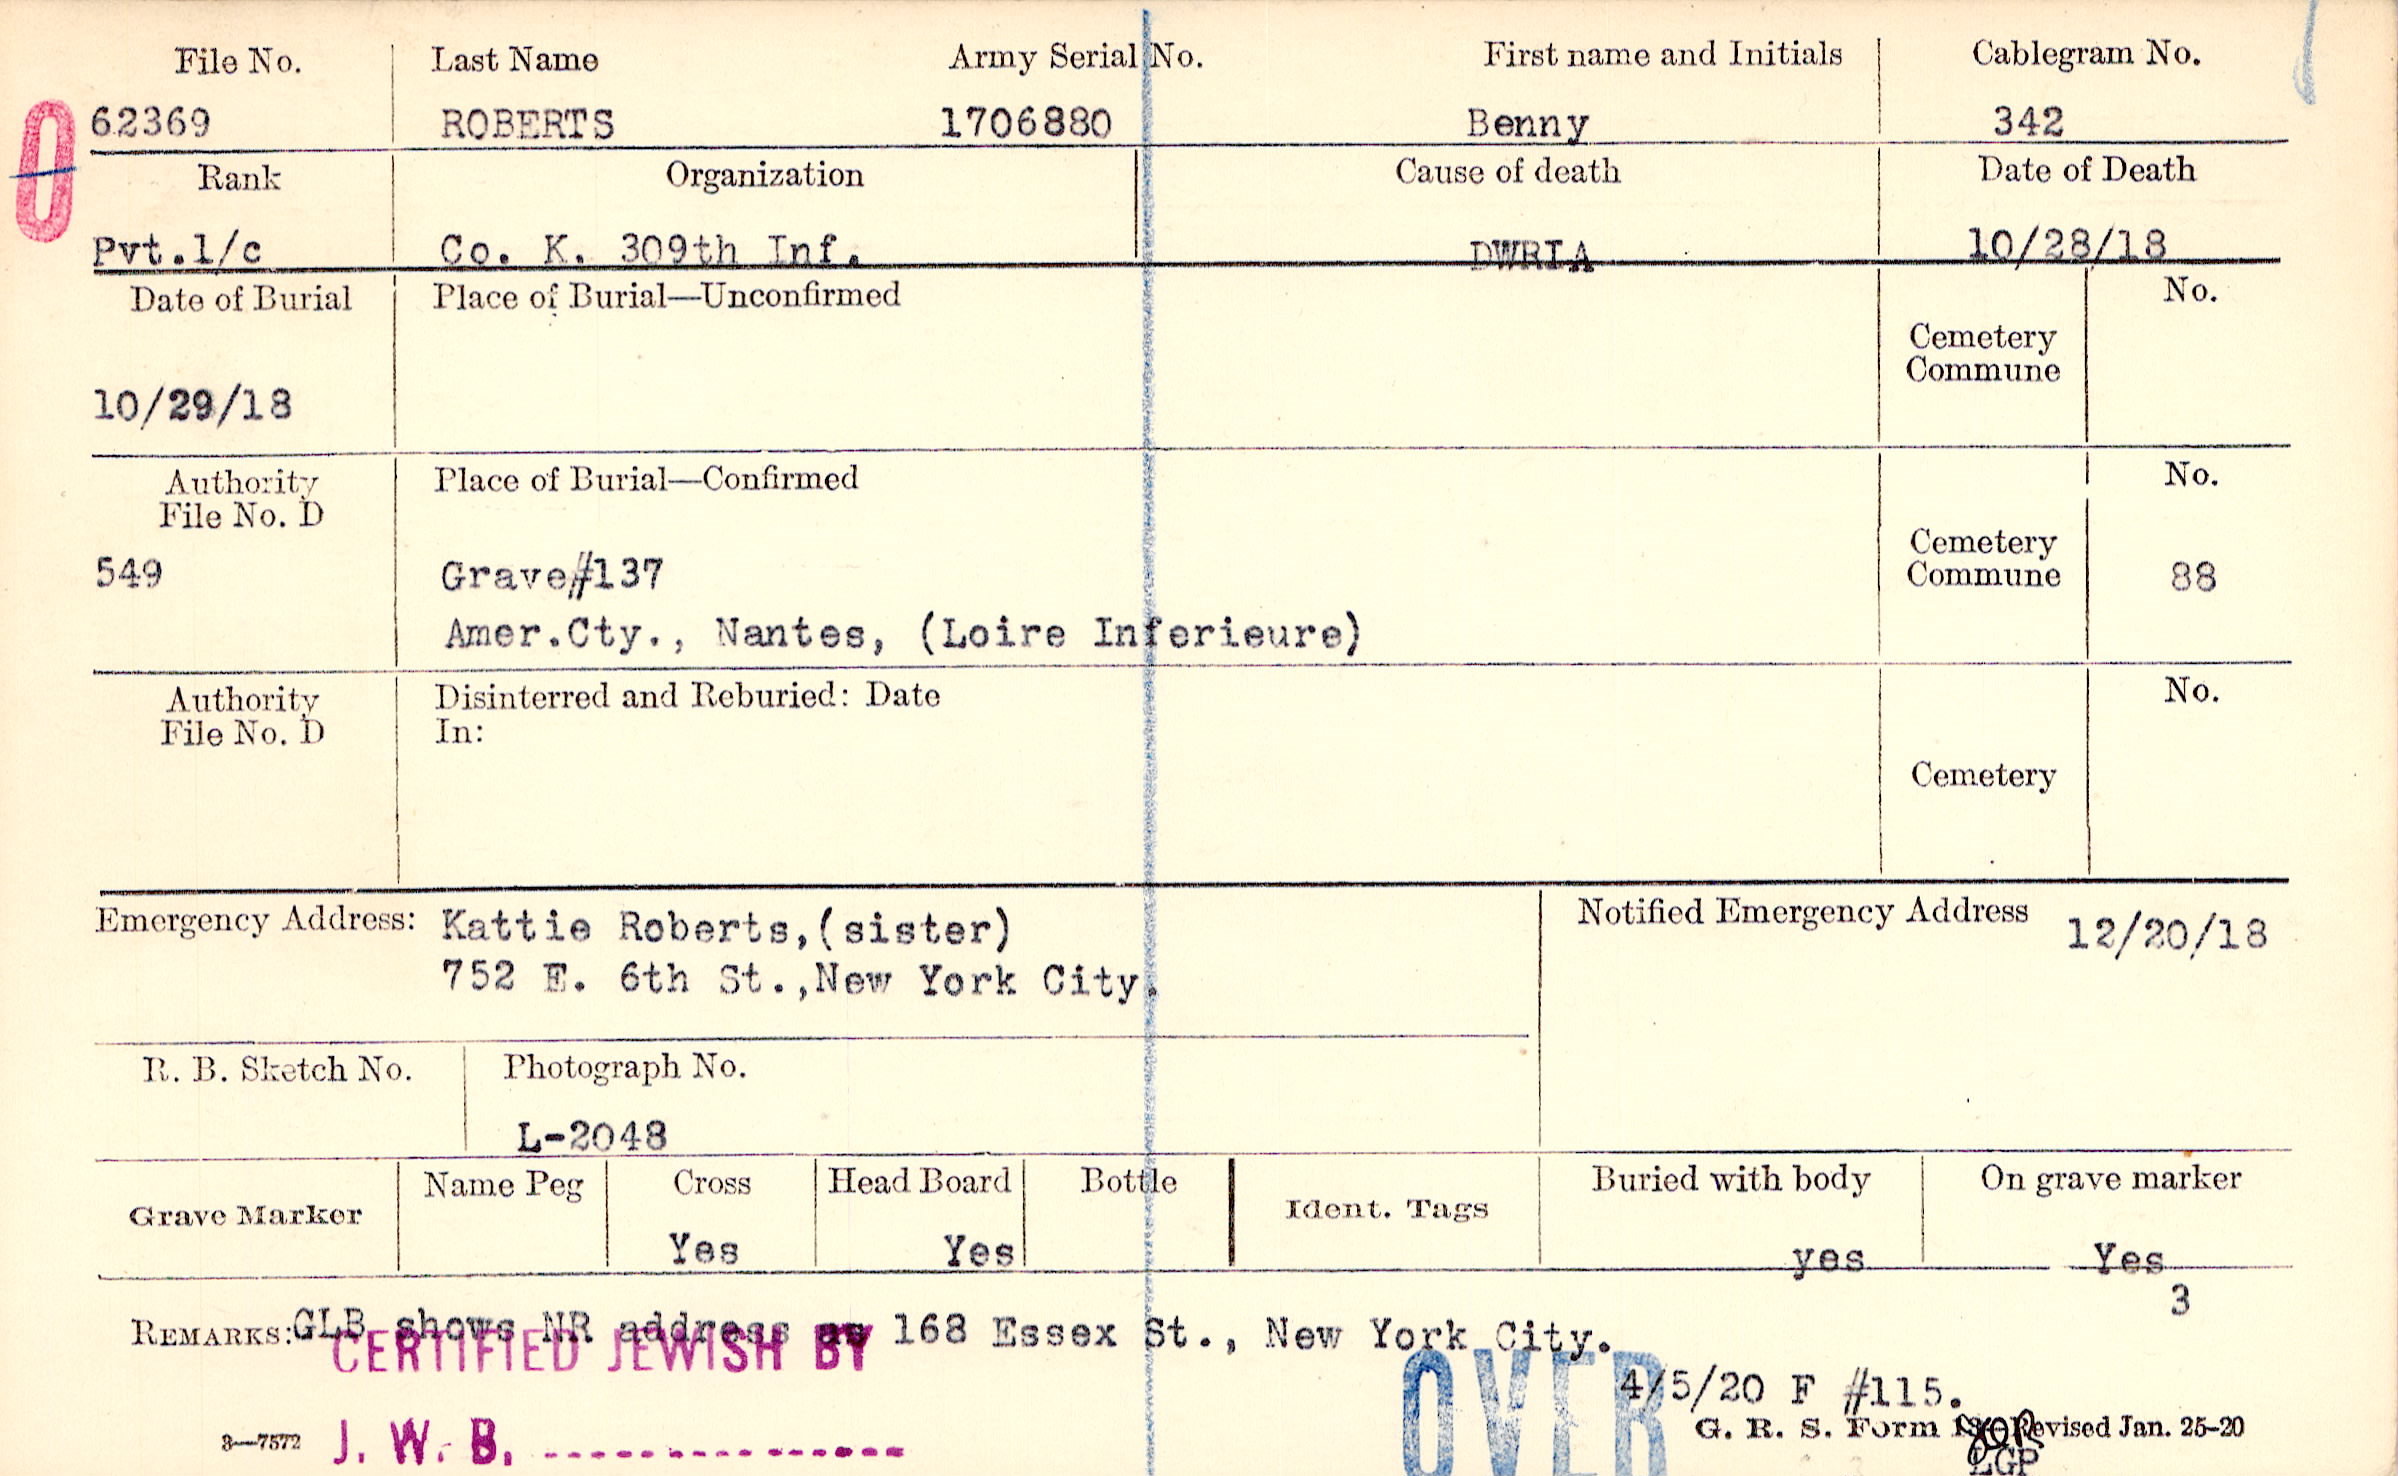 File No. Last Name Army Serial No. First name and Initials Cablegram No.
62369 ROBERTS 1706880 Benny 342
0
Rank Organization Cause of death Date of Death
Pvt.1/c Co. K. 309th Inf. DWRIA 10/28/18
Date of Burial Place of Burial—Unconfirmed No.
Cemetery
Commune
10/29/18
Authority Place of Burial—Confirmed No.
File No. D
Cemetery
549 Grave#137 Commune 88
Amer.Cty., Nantes, (Loire Inferieure)
Authority Disinterred and Reburied: Date No.
File No. D In:
Cemetery
Emergency Address: Kattie Roberts,(sister) Notified Emergency Address 12/20/18
752 E. 6th St.,New York City.
R. B. Sketch No. Photograph No.
L-2048
Grave Marker Name Peg Cross Head Board Bottle Ident. Tags Buried with body On grave marker
Yes Yes yes Yes
3
REMARKS: GLB shows NR address as 168 Essex St., New York City.
CERTIFIED JEWISH BY
OVER
4/5/20 F #115.
3—7572 J. W. B. G. R. S. Form Revised Jan. 25-20
LGP